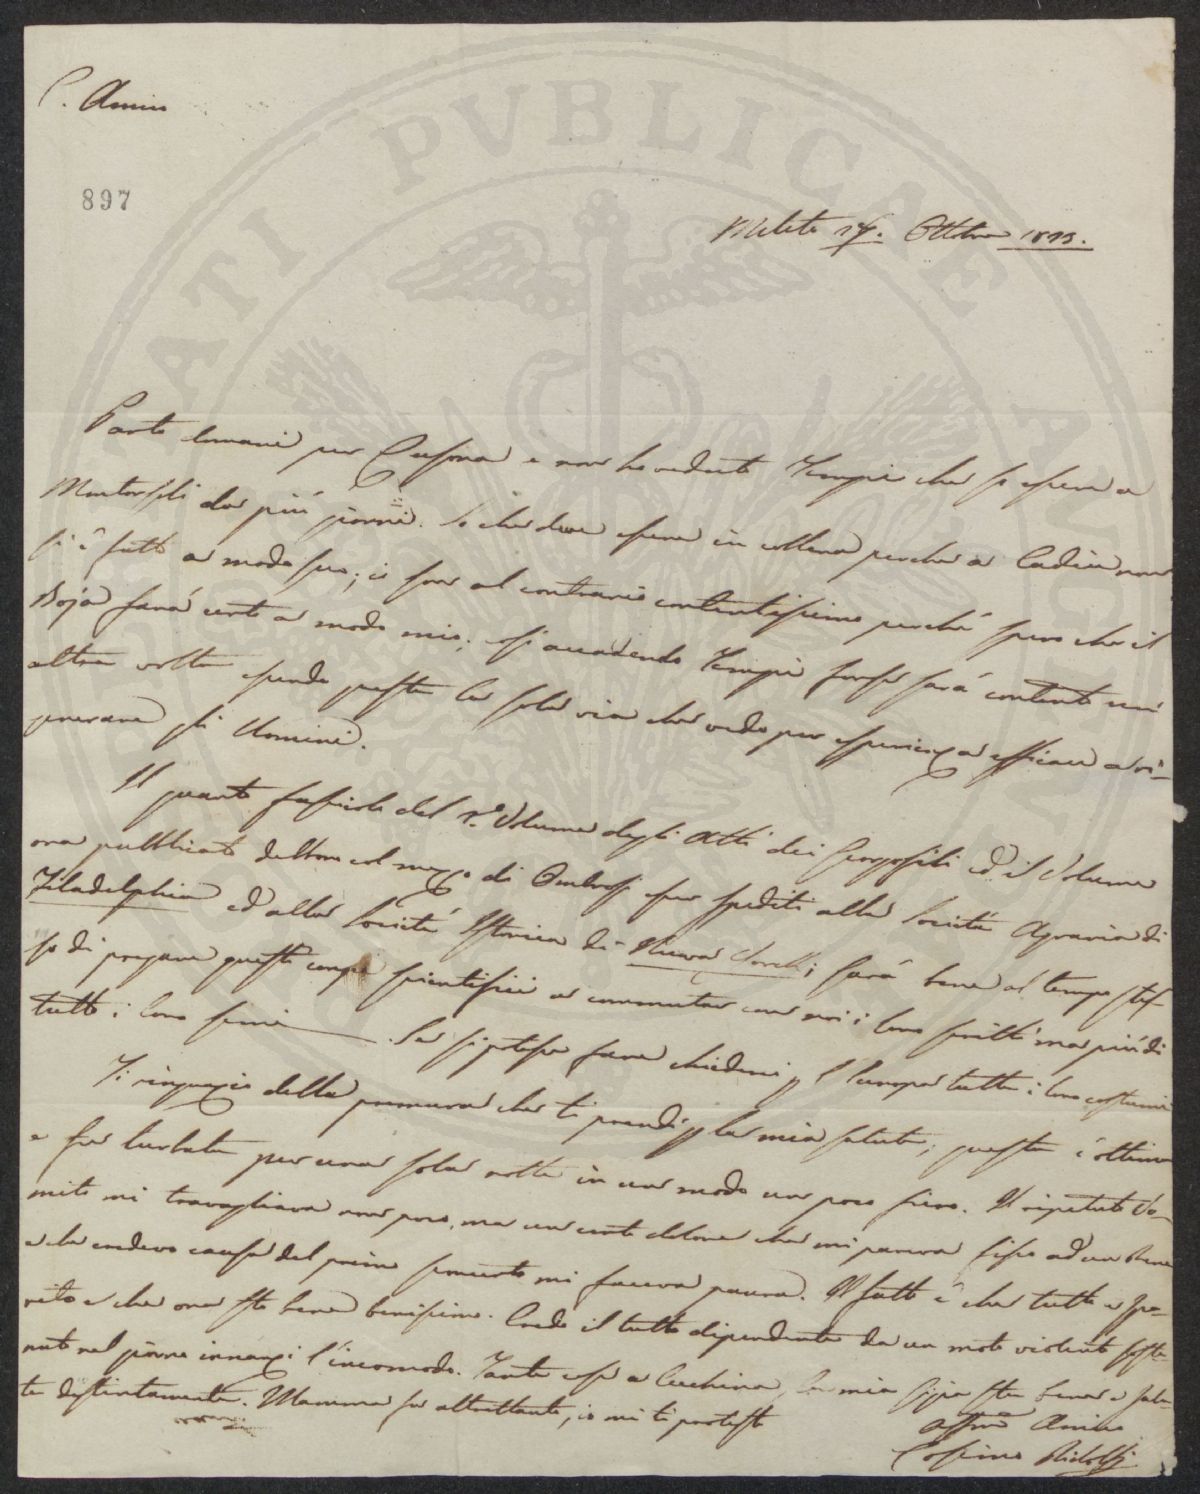 C. Amico
897
Meleto 17. Ottobre 1823.
Parto domani per Cusona e non ho veduto Tempi che so essere a
Montorsoli da più giorni. So che deve essere in collera perché a Cadia non
si è fatto a modo suo; io son al contrario contentissimo perché spero che il
Boja farà certo a modo mio; così accadendo Tempi forse sarà contento un'
altra volta essendo questa la sola via che vedo per esperienza efficace a ri-
generare gli Uomini.
Il quarto fascicolo del 1.º Volume degli Atti dei Georgofili ed il Volume
ora pubblicato dettono col mezzo di Ombrosi fur spediti alla Società Agraria di
Filadelphia ed alla Società Istorica di Nuova Jorck; sarà bene al tempo stes-
so di pregare questi corpi scientifici a commutar con noi i loro scritti ma più di
tutto i loro semi. Se si potesse fare chiederei p l'Europa tutta i loro costumi
Ti ringrazio della premura che ti prendi p la mia salute; questa è ottima
e fu turbata per una sola notte in un modo un poco fiero. Il ripetuto Vo-
mito mi travagliava non poco, ma un certo dolore che mi pareva fisso ad un Rene
e che credevo causa del primo sconcerto mi faceva paura. Il fatto è che tutto è spa-
rito e che ora sto bene benissimo. Credo il tutto dipendente da un moto violento soste-
nuto nel giorno innanzi l'incomodo. Tante cose a Cecchina, la mia sposa sta bene e salu-
ta distintamente. Mamma fa altrettanto, io mi ti protesto
Affmo Amico
Cosimo Ridolfi